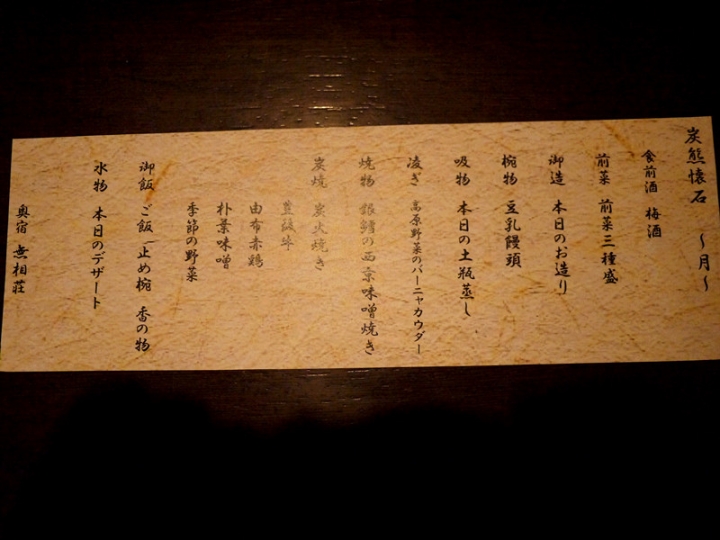 炭熊懐石 〜月〜
食前酒 梅酒
前菜 前菜三種盛
御造 本日のお造り
椀物 豆乳饅頭
吸物 本日の土瓶蒸し
凌ぎ 高原野菜のバーニャカウダー
焼物 銀鱈の西京味噌焼き
炭焼 炭火焼き
豊後牛
由布赤鶏
朴葉味噌
季節の野菜
御飯 ご飯 止め椀 香の物
水物 本日のデザート
奥宿 無相荘